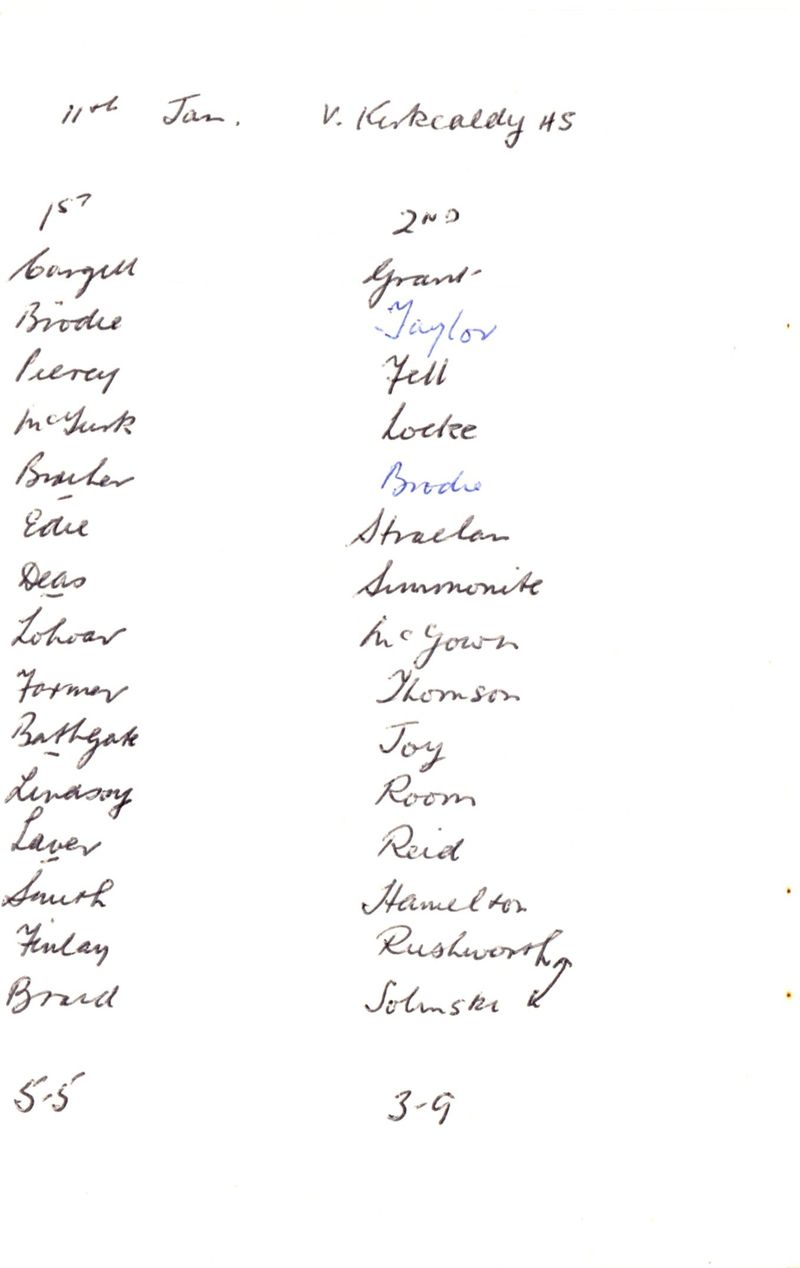 11th Jan. V. Kirkcaldy HS
1ST 2ND
Cargill Grant
Brodie Taylor
Piercy Fell
McGurk Locke
Bracher Brodie
Edie Strachan
Deas Simmonite
Lohoar McGown
Farmer Thomson
Bathgate Joy
Lindsay Room
Laver Reid
Smith Hamelton
Finlay Rushworth
Braid Solinski
5-5 3-9